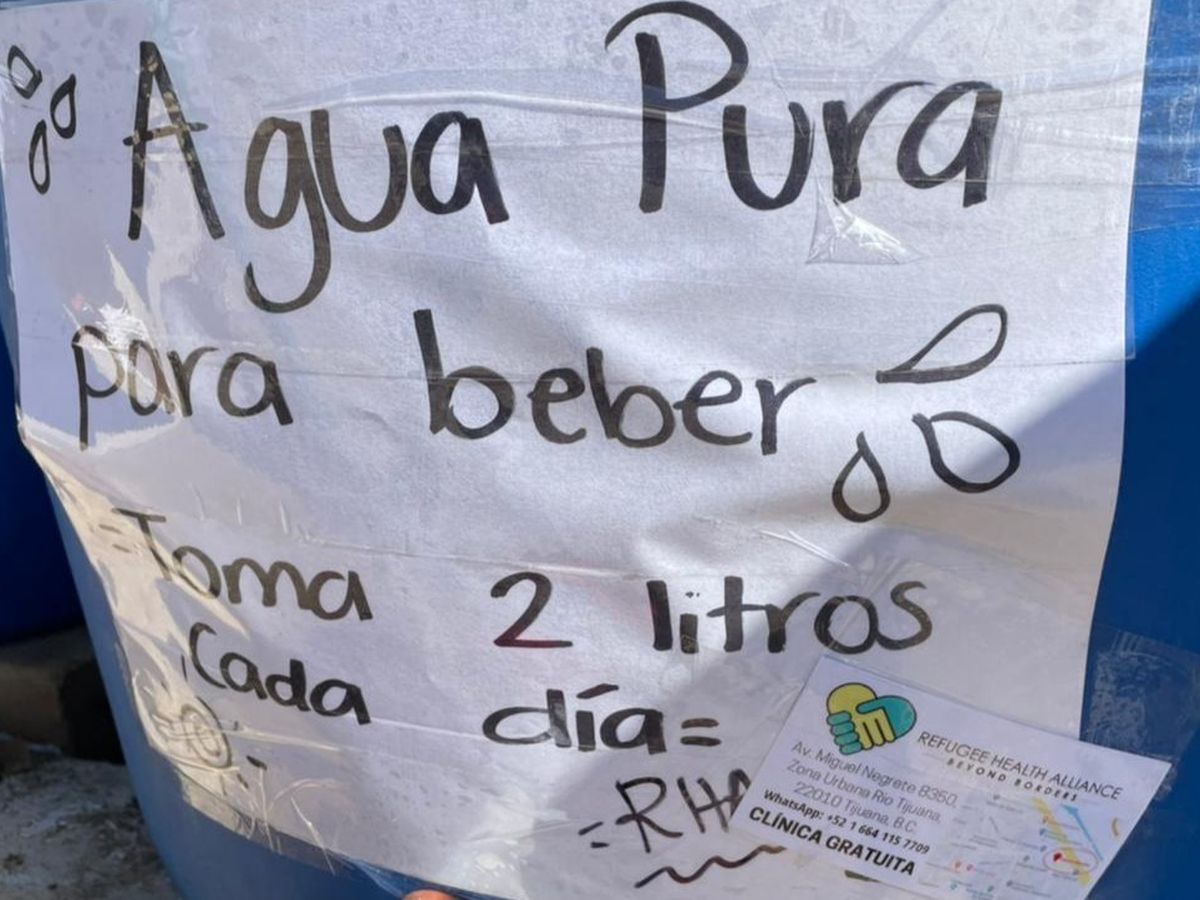 Agua Pura
para beber
=Toma 2 litros
Cada día=
-RHA
REFUGEE HEALTH ALLIANCE
BEYOND BORDERS
Av. Miguel Negrete 8350,
Zona Urbana Rio Tijuana,
22010 Tijuana, B.C.
WhatsApp: +52 1 664 115 7709
CLÍNICA GRATUITA